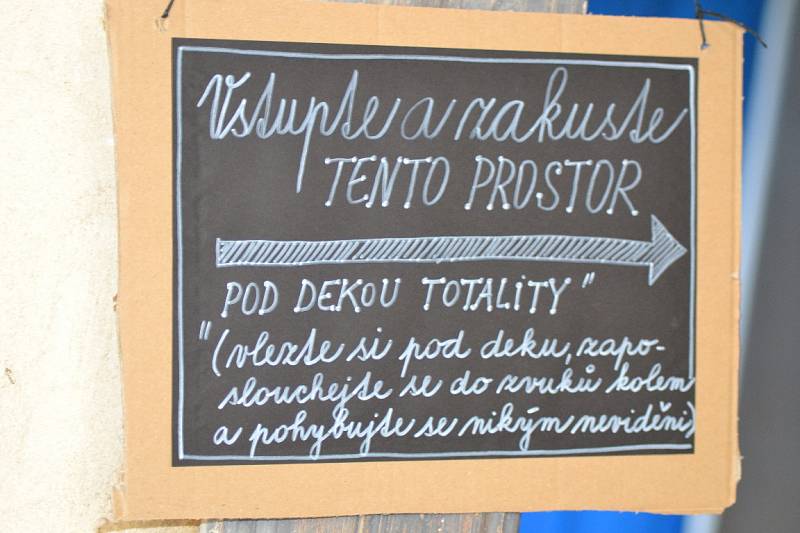 Vstupte a zakuste
TENTO PROSTOR
POD DEKOU TOTALITY"
"(vlezte si pod deku, zapo-
slouchejte se do zvuků kolem
a pohybujte se nikým neviděni)